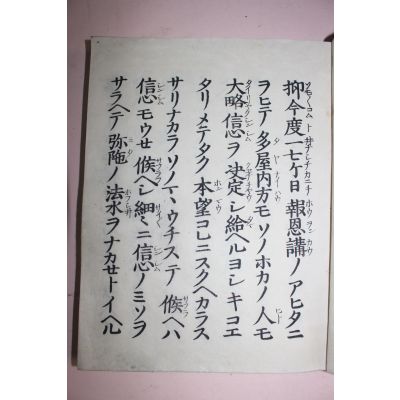 抑今度一七ケ日報恩講ノアヒタニ
ヲヒテ多屋内方モソノホカノ人モ
大略信心ヲ決定シ給ヘルヨシキコエ
タリメテタク本望コレニスクヘカラス
サリナカラソノマヽウチステ候ヘハ
信心モウセ候ヘシ細々ニ信心ノミソヲ
サラヘテ弥陁ノ法水ヲナカセトイヘル